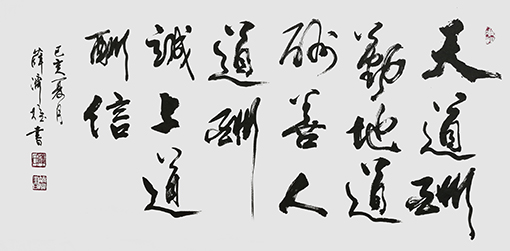 天道酬
勤地道
酬善人
道酬
誠上道
酬信
己亥夏月
薛濟書